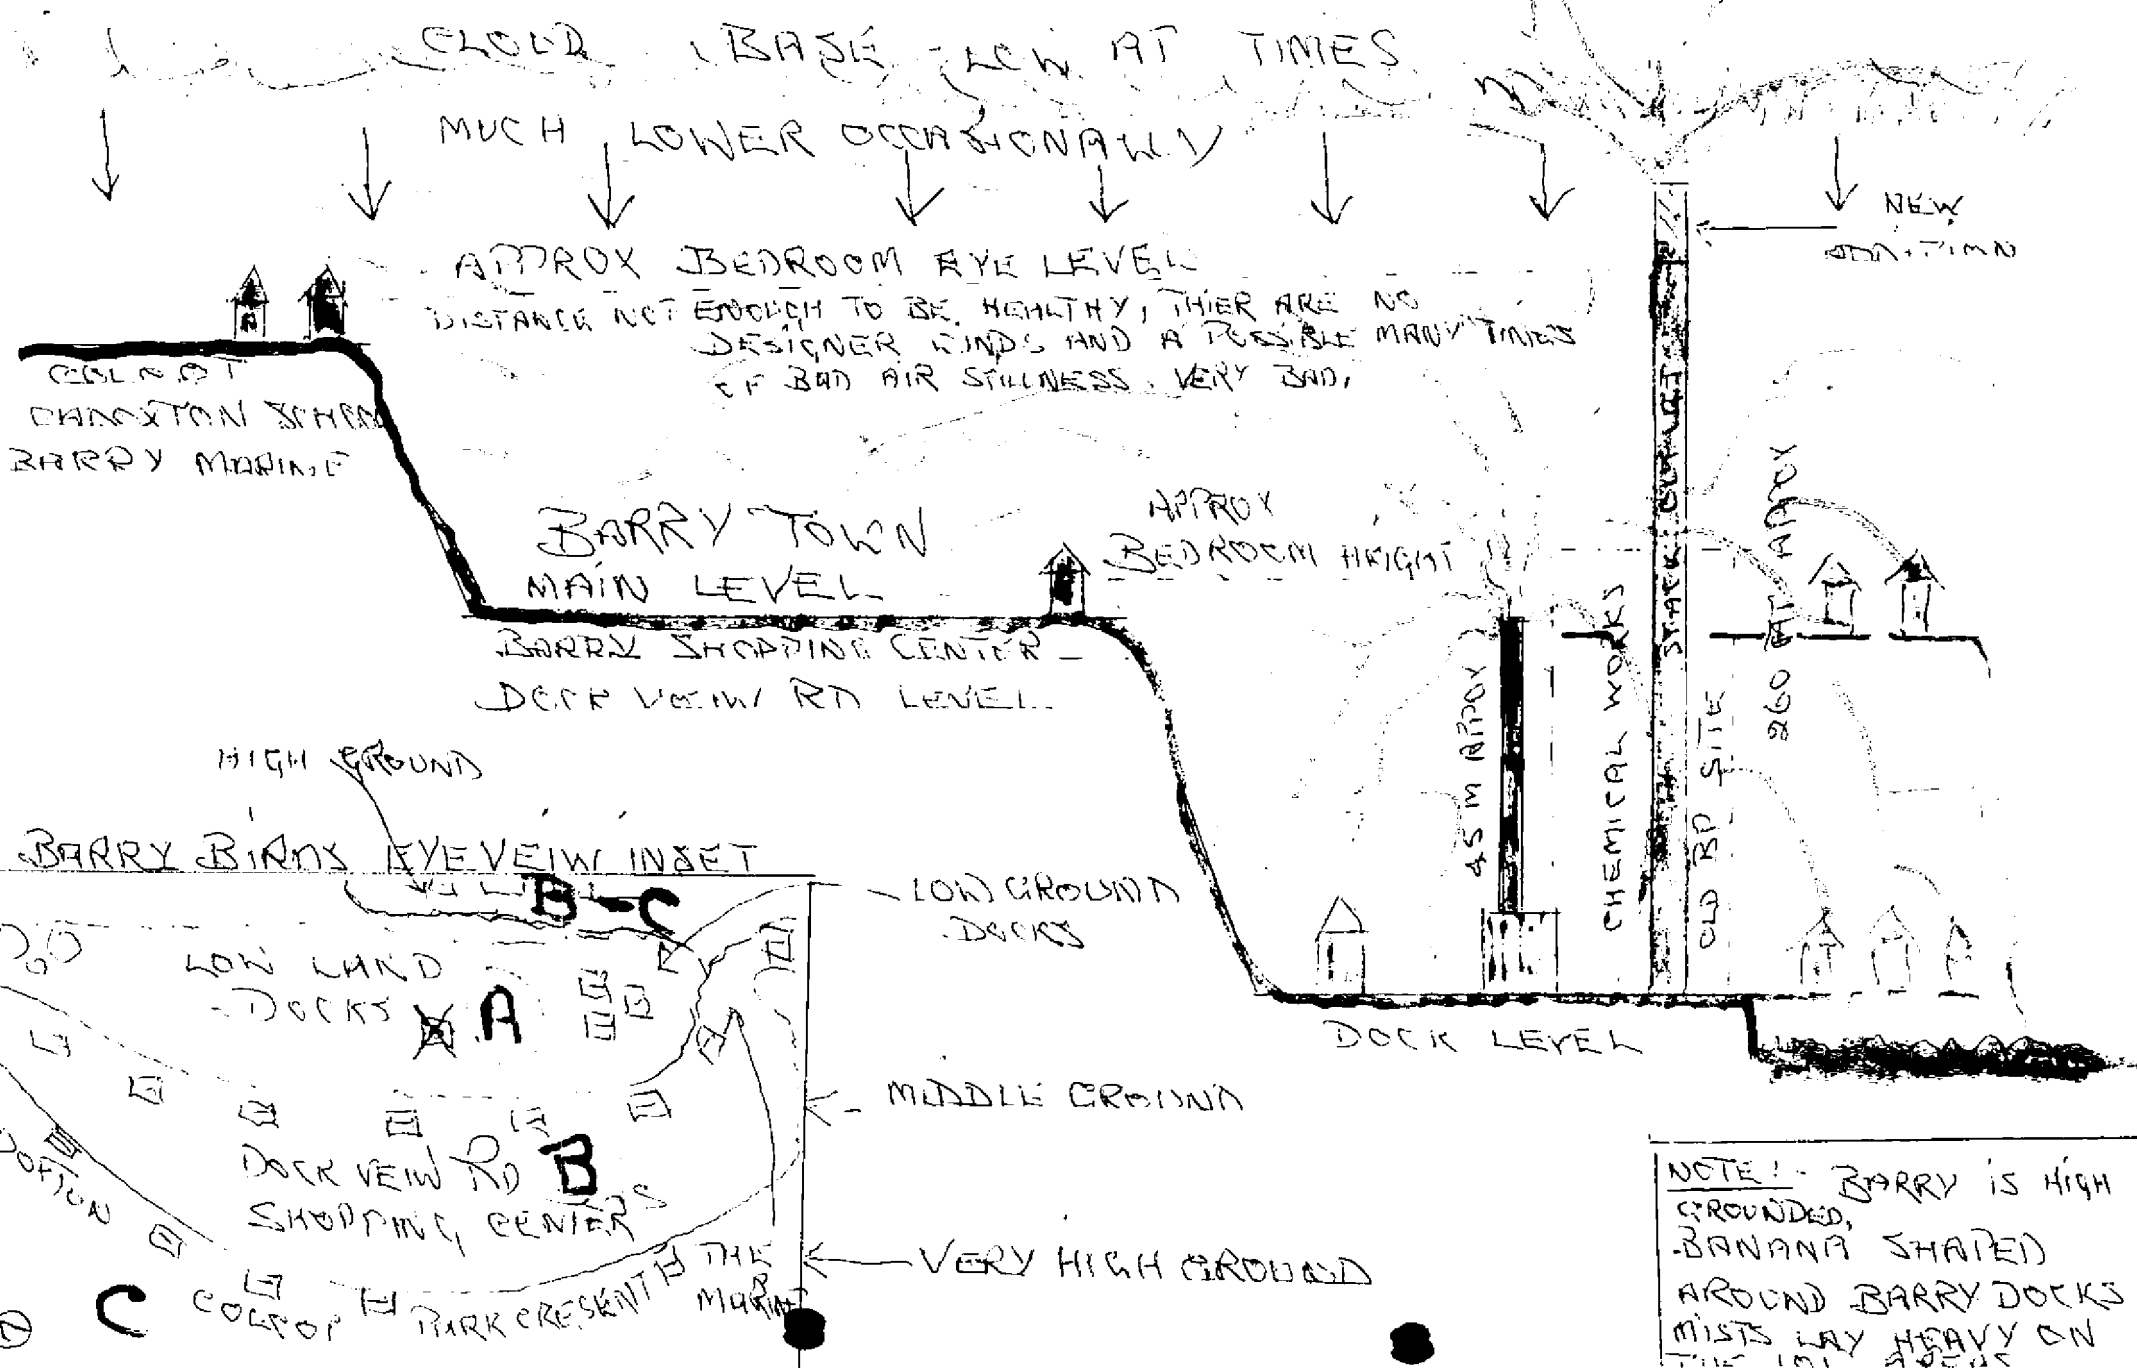 CLOUD BASE - LOW AT TIMES
MUCH LOWER OCCASIONALLY
NEW
ADDITION
APPROX BEDROOM EYE LEVEL
DISTANCE NOT ENOUGH TO BE HEALTHY, THIER ARE NO
DESIGNER WINDS AND A POSSIBLE MANY TIMES
OF BAD AIR STILLNESS. VERY BAD.
A
COLNOT
BARRY MARINE
BARRY TOWN
MAIN LEVEL
APPROX
BEDROOM HEIGHT
BARRY SHOPPING CENTER -
DOCK VEIW RD LEVEL
45 M APPOX
CHEMICAL WORKS
OLD BP SITE
260 FT APPOX
DOCK LEVEL
HIGH GROUND
BARRY BIRDS EYE VEIW INSET
B-C
LOW GROUND
DOCKS
LOW LAND
- DOCKS A
MIDDLE GROUND
DOCK VEIW RD B
SHOPPING CENTER
VERY HIGH GROUND
C
PARK CRESENT
THE
MARINE
NOTE! - BARRY IS HIGH
GROUNDED,
BANANA SHAPED
AROUND BARRY DOCKS
MISTS LAY HEAVY ON